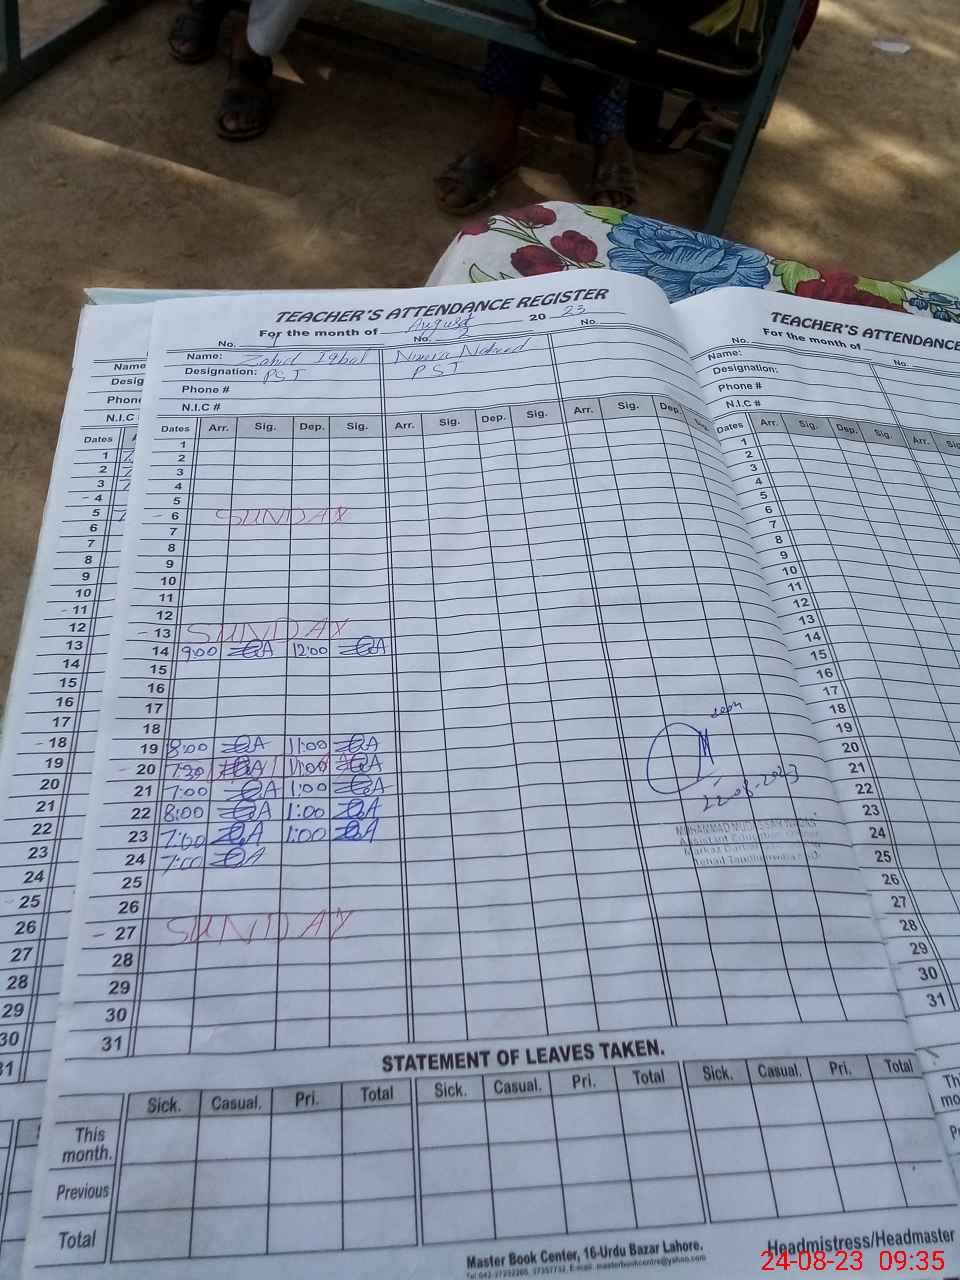 TEACHER'S ATTENDANCE REGISTER
For the month of August 20 23
No. 1 No. 2 No.
Name: Zahid Iqbal
Designation: PST PST
Phone #
N.I.C #
Dates Arr. Sig. Dep. Sig. Arr. Sig. Dep. Sig. Arr. Sig. Dep. Sig.
1
2
3
4
5
6 SUNDAY
7
8
9
10
11
12
13 SUNDAY
14 9:00 12:00
15
16
17
18
19 8:00 11:00
20 7:30 11:00
21 7:00 1:00
22 8:00 1:00
23 7:00 1:00
24 7:00
25
26
27 SUNDAY
28
29
30
31
22.08.2023
Assistant Education Officer
STATEMENT OF LEAVES TAKEN.
Sick. Casual. Pri. Total Sick. Casual. Pri. Total Sick. Casual. Pri. Total
This month.
Previous
Total
Master Book Center, 16-Urdu Bazar Lahore.
Headmistress/Headmaster
TEACHER'S ATTENDANCE
For the month of
No. No.
Name:
Designation:
Phone #
N.I.C #
Dates Arr. Sig. Dep. Sig. Arr.
1
2
3
4
5
6
7
8
9
10
11
12
13
14
15
16
17
18
19
20
21
22
23
24
25
26
27
28
29
30
31
Name
Desig
Phon
N.I.C
Dates
1
2
3
4
5
6
7
8
9
10
11
12
13
14
15
16
17
18
19
20
21
22
23
24
25
26
27
28
29
30
31
24-08-23 09:35